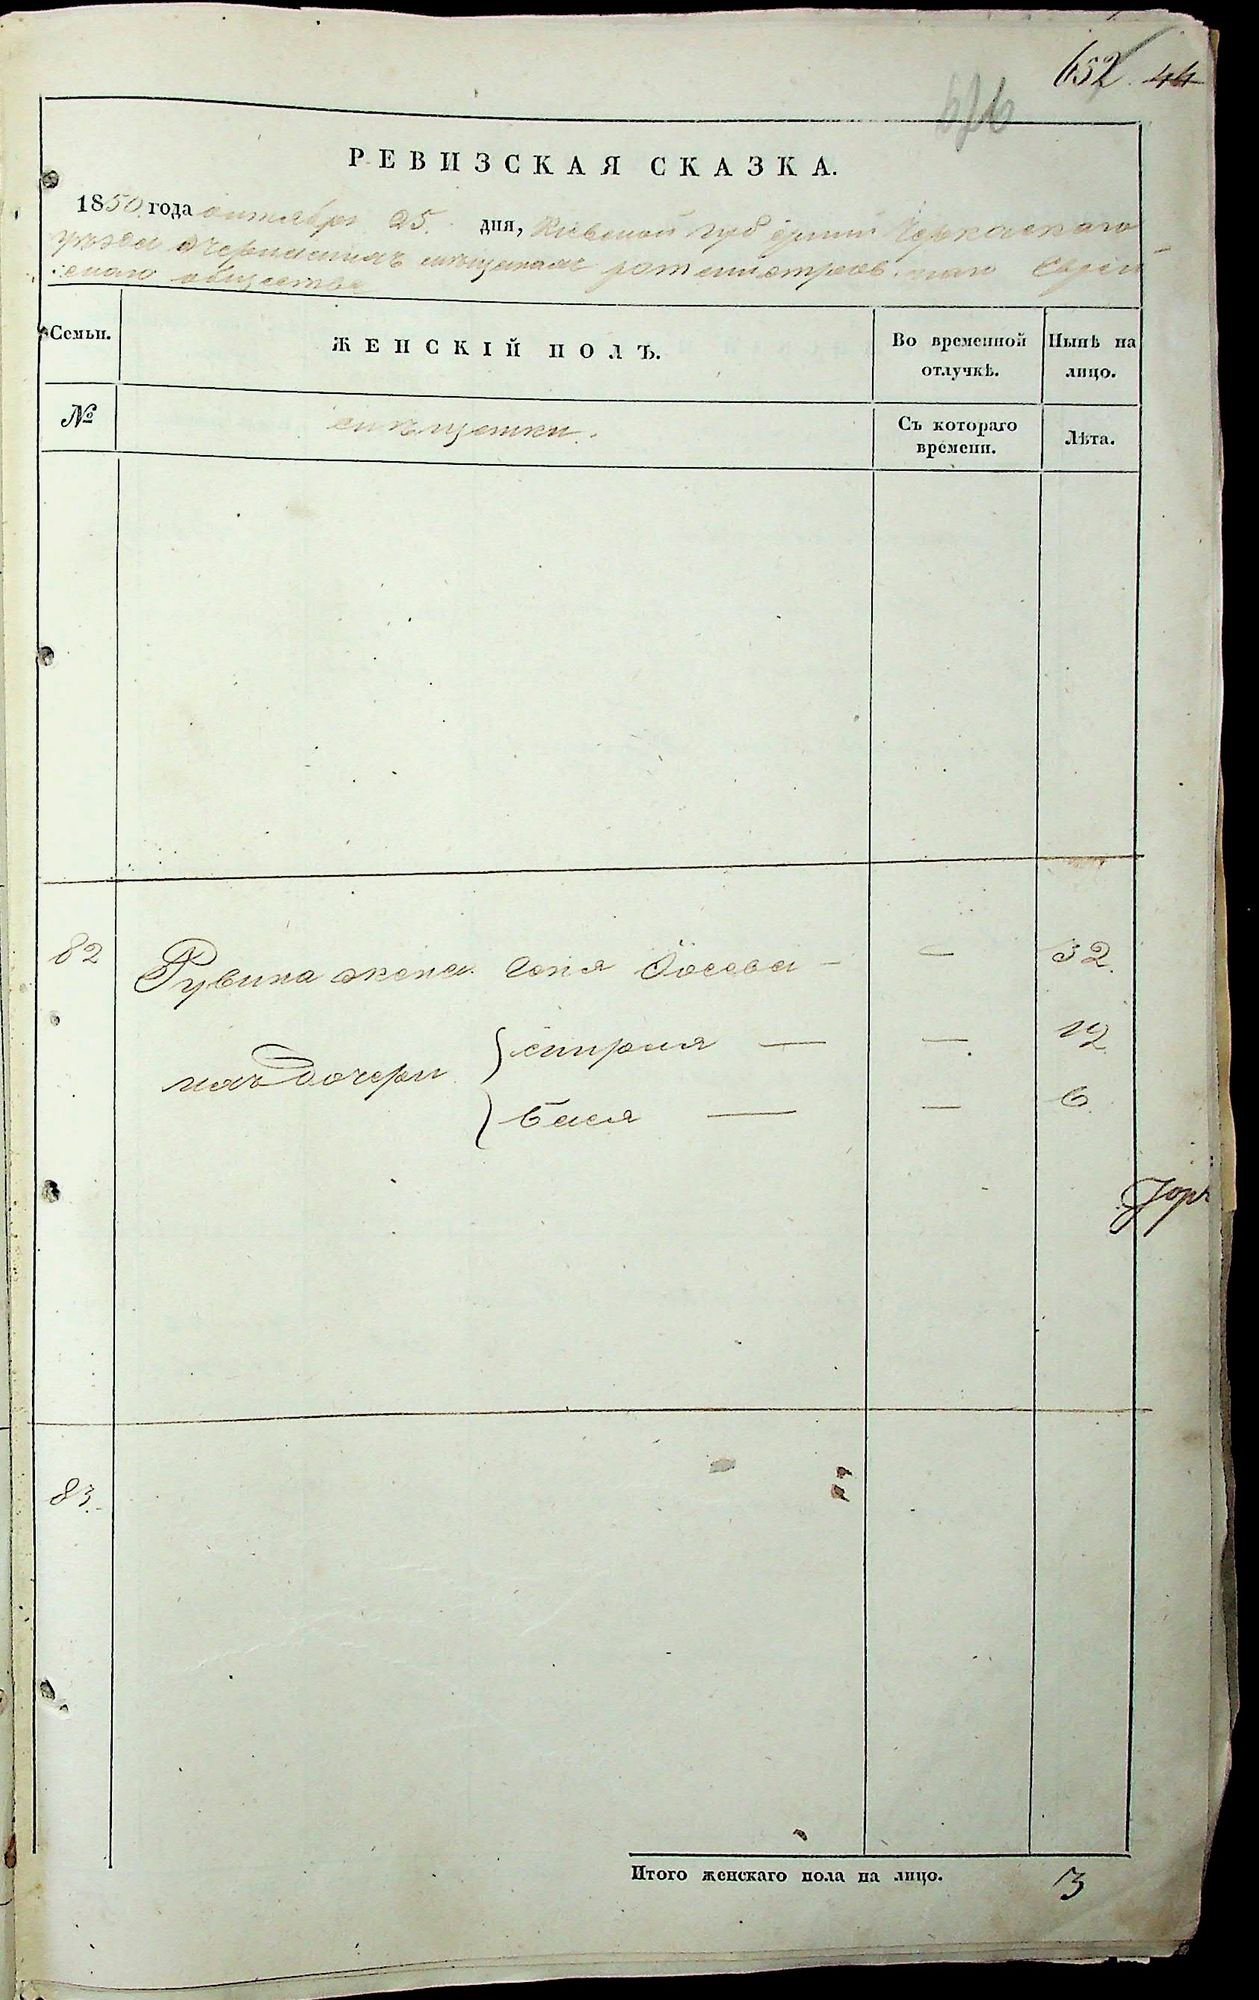 652. 44
РЕВИЗСКАЯ СКАЗКА.
1850 года октября 25. дня, Кіевской губерніи Черкаскаго
уѣзда мѣщанахъ ротмистровскаго Еврей-
скаго общества
Семьи.
ЖЕНСКІЙ ПОЛЪ.
Во временной отлучкѣ.
Нынѣ на лицо.
№
мѣщанки.
Съ котораго времени.
Лѣта.
82 Рувина жена Соня Іосева — — 32.
ихъ дочери
Бася — — 6
— — 12
83.
Итого женскаго пола на лицо. 3